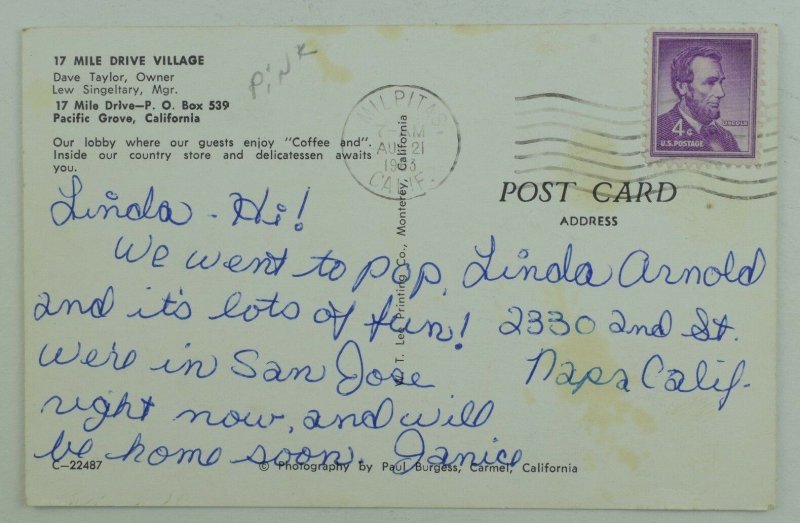 17 MILE DRIVE VILLAGE
Dave Taylor, Owner
Lew Singeltary, Mgr.
17 Mile Drive—P. O. Box 539
Pacific Grove, California
Our lobby where our guests enjoy "Coffee and".
Inside our country store and delicatessen awaits
you.
PiNK
MILPITAS
7-AM
AUG 21
1963
CALIF.
LINCOLN
4¢
U.S. POSTAGE
POST CARD
ADDRESS
Linda - Hi!
We went to pop,
and it's lots of fun!
We're in San Jose
right now, and will
be home soon. Janice
Linda Arnold
2330 2nd St.
Napa Calif.
T. Lee Printing Co., Monterey, California
C-22487
© Photography by Paul Burgess, Carmel, California